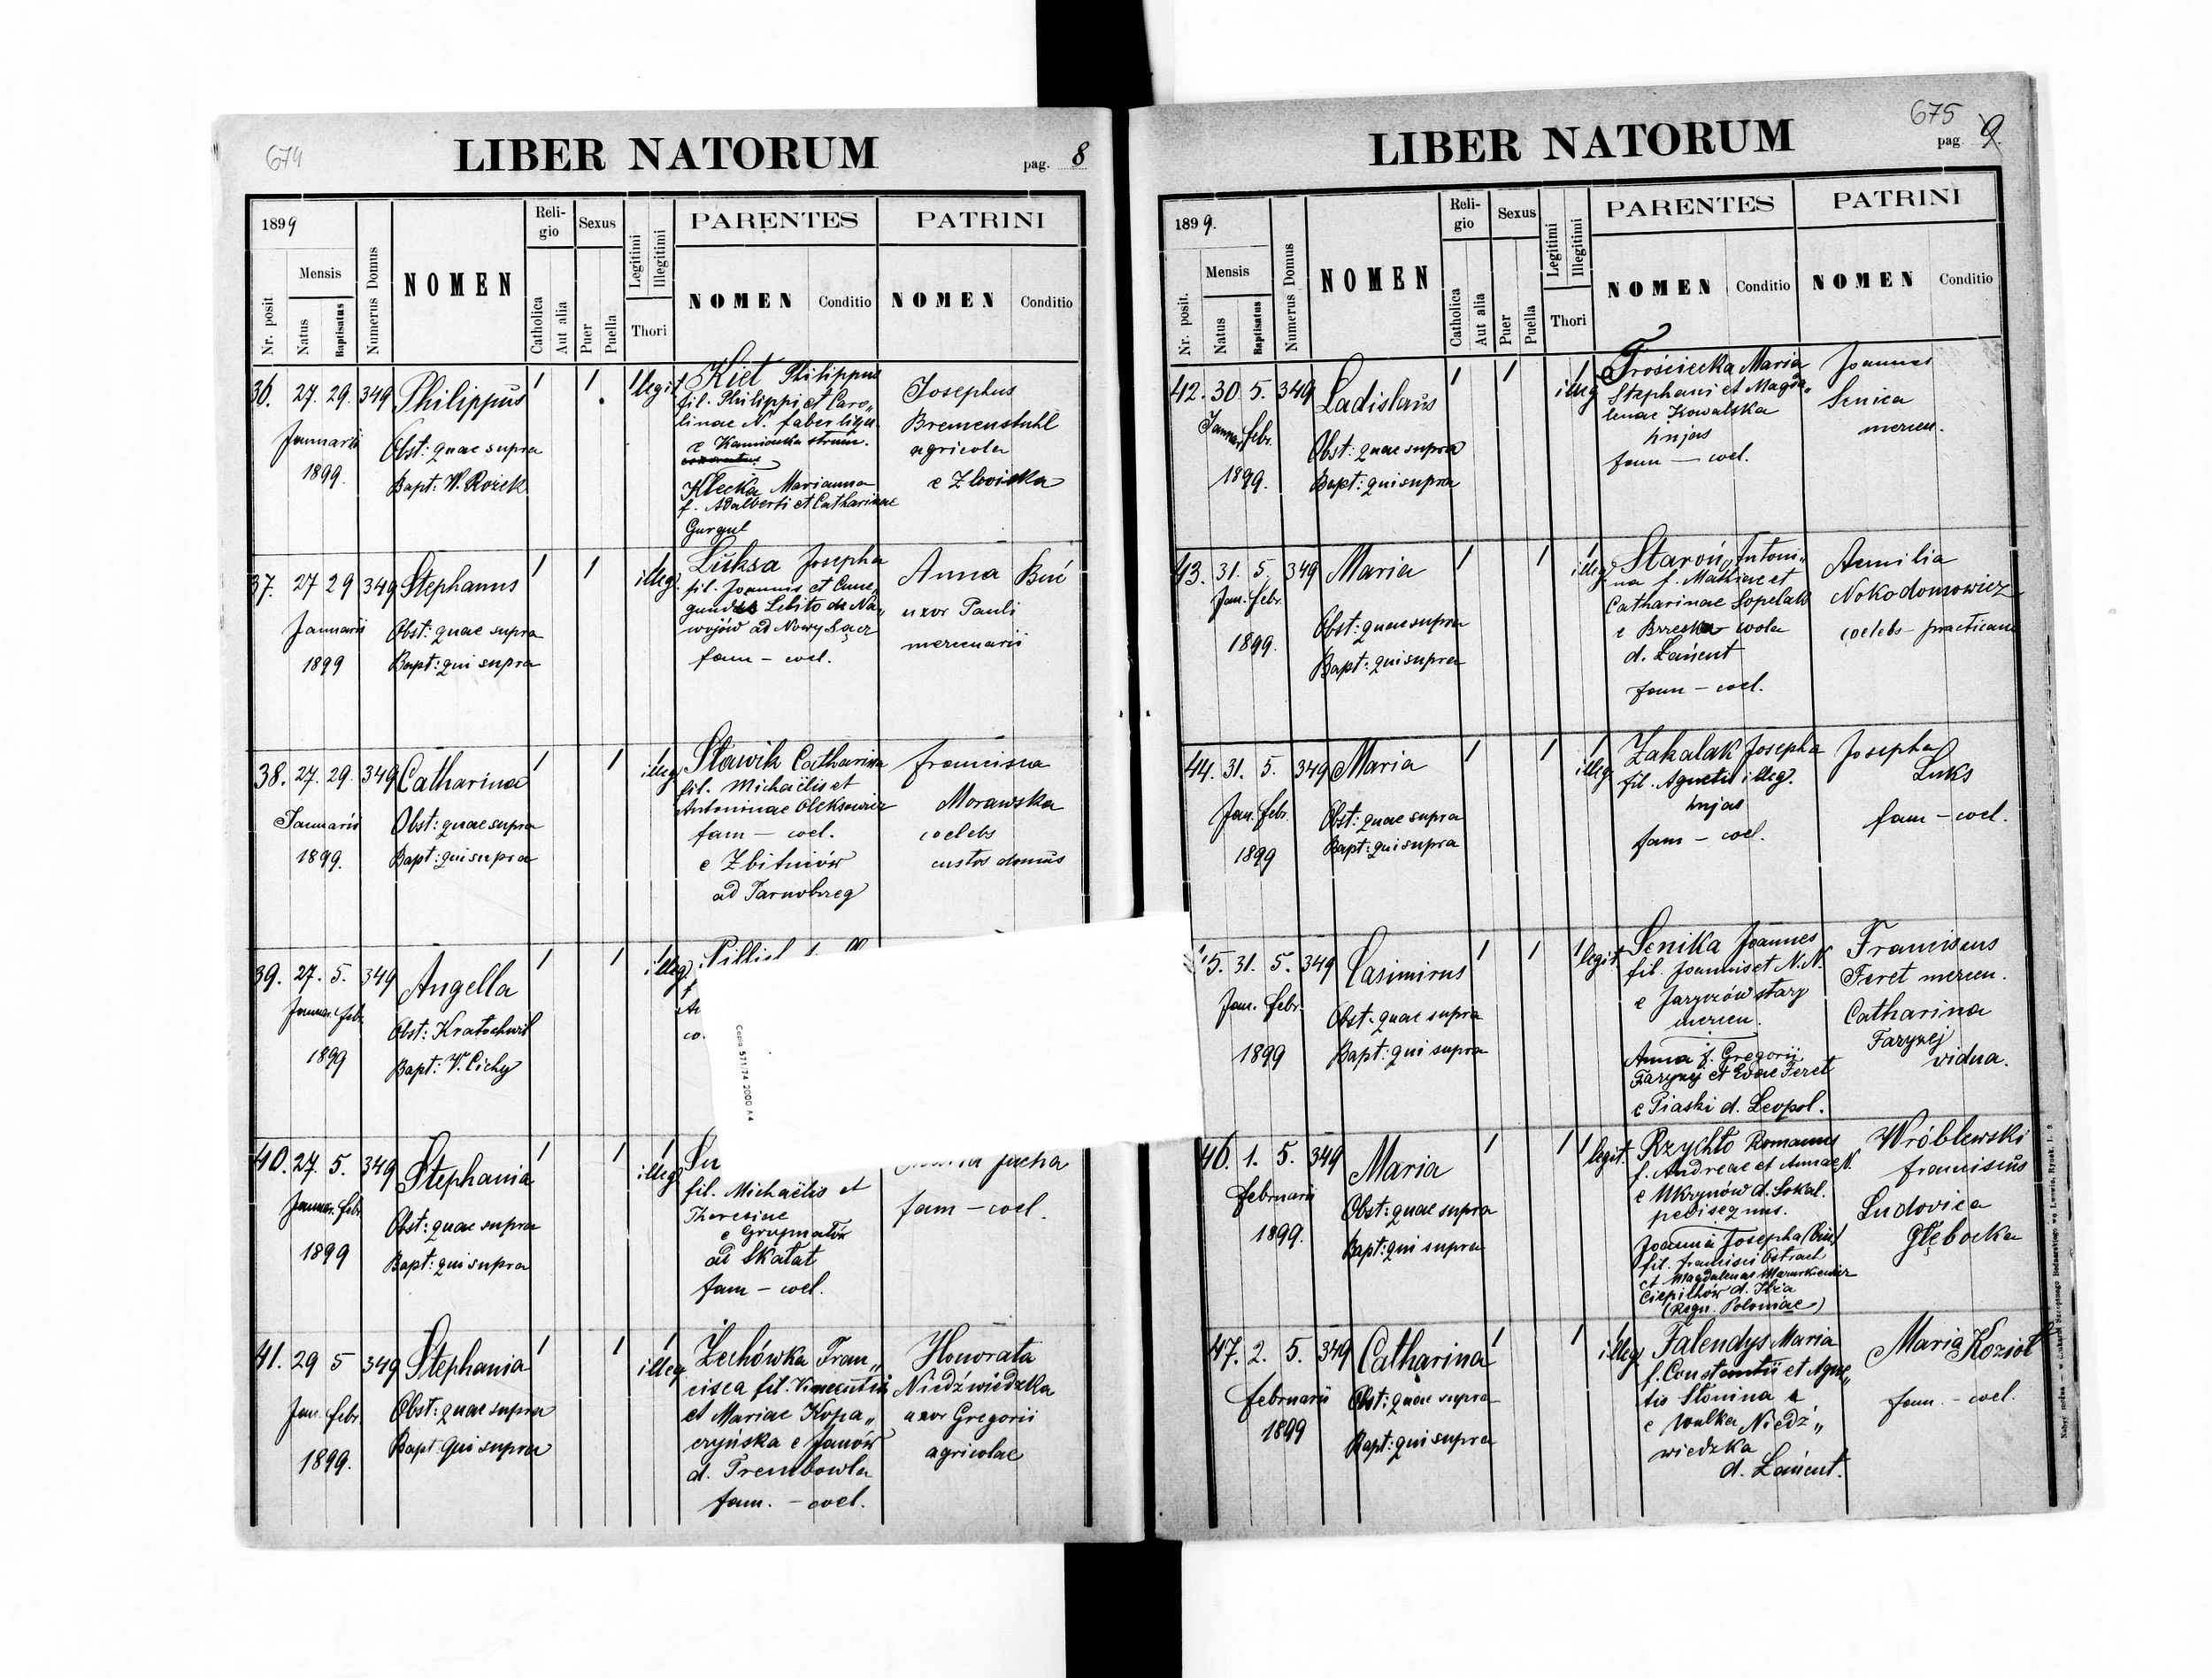 674
LIBER NATORUM
pag. 8
1899
Mensis
Nr. posit.
Natus
Baptisatus
Numerus Domus
NOMEN
Religio
Catholica
Aut alia
Sexus
Puer
Puella
Legitimi
Illegitimi
Thori
PARENTES
NOMEN
Conditio
PATRINI
NOMEN
Conditio
36. 27. 29. 349 Philippus 1 1 1 legit.
Januarii
1899.
Obst: quae supra
Bapt: W. Rożek
Kiet Philippus
fil. Philippi et Caro„
linae N. faber lign.
e Kamionka strum.
Klecka Marianna
f. Adalberti et Catharinae
Gurgul
Josephus
Bremenstuhl
agricola
e Zboiska
37. 27 29 349 Stephanus 1 1 illeg.
Januarii
1899
Obst: quae supra
Bapt: qui supra
Luksa Josepha
fil. Joannis et Cune„
gundis Lebito de Na„
wojów ad Nowy Sącz
fam – coel.
Anna Buć
uxor Pauli
mercenarii
38. 27. 29. 349 Catharina 1 1 illeg
Januarii
1899.
Obst: quae supra
Bapt: qui supra
Stawik Catharina
fil. Michaëlis et
Antoninae Oleksowicz
fam – coel.
e Zbitniów
ad Tarnobrzeg
Francisca
Morawska
coelebs
custos domus
39. 27. 5. 349 Angella 1 1 illeg.
Januar. febr.
1899
Obst: Kratochwil
Bapt: V. Cichy
Copia 571/74 2000 A4
40. 27. 5. 349 Stephania 1 1 1 illeg
Januar. febr.
1899
Obst: quae supra
Bapt: qui supra
fil. Michaëlis et
Theresiae
e Grzymałów
ad Skałat
fam – coel.
Jucha
fam – coel.
41. 29 5 349 Stephania 1 1 1 illeg
Jan. febr.
1899.
Obst: quae supra
Bapt: qui supra
Zechówka Fran„
cisca fil. Vincentii
et Mariae Kopa„
czyńska e Janów
d. Trembowla
fam. – coel.
Honorata
Niedźwiedzka
uxor Gregorii
agricolae
675
LIBER NATORUM
pag. 9.
1899.
Mensis
Nr. posit.
Natus
Baptisatus
Numerus Domus
NOMEN
Religio
Catholica
Aut alia
Sexus
Puer
Puella
Legitimi
Illegitimi
Thori
PARENTES
NOMEN
Conditio
PATRINI
NOMEN
Conditio
42. 30 5. 349 Ladislaus 1 1 1 illeg
Januar. febr.
1899.
Obst: quae supra
Bapt: qui supra
Trościecka Maria
Stephani et Magda„
lenae Kowalska
hujas
fam – coel.
Joannes
Senica
mercen.
43. 31. 5. 349 Maria 1 1 1 illeg
Jan. febr.
1899.
Obst: quae supra
Bapt: qui supra
Staroń Antoni„
na f. Mathiae et
Catharinae Sopelak
e Brzeska wola
d. Łańcut
fam – coel.
Aemilia
Nokodomowicz
coelebs – practicans
44. 31. 5. 349 Maria 1 1 1 illeg
Jan. febr.
1899
Obst: quae supra
Bapt: qui supra
Zakalak Josepha
fil. Agnetis illeg.
hujas
fam – coel.
Josepha
Luks
fam – coel.
45. 31. 5. 349 Casimirus 1 1 1 legit.
Jan. febr.
1899
Obst. quae supra
Bapt: qui supra
Senika Joannes
fil. Joannis et N.N.
e Jaryczów stary
mercen.
Anna f. Gregorii
Farynej et Evae Feret
e Piaski d. Leopol.
Franciscus
Feret mercen.
Catharina
Farynej
vidua.
46. 1. 5. 349 Maria 1 1 1 legit.
Februarii
1899.
Obst: quae supra
Bapt: qui supra
Rzychto Romanus
f. Andreae et Annae N.
e Ukrynów d. Sokal.
pedisequus.
Joanna Josepha (bin)
fil. Francisci Ostrach
et Magdalenae Mazurkiewicz
Ciepilhów d. Iłża
(Regn. Poloniae)
Wróblewski
Franciscus
Ludovica
Głębocka
47. 2. 5. 349 Catharina 1 1 1 illeg
Februarii
1899
Obst: quae supra
Bapt: qui supra
Falendys Maria
f. Constantii et Agne„
tis Słonina
e Wulka Niedź„
wiedzka
d. Łańcut.
Maria Kozioł
fam. – coel.